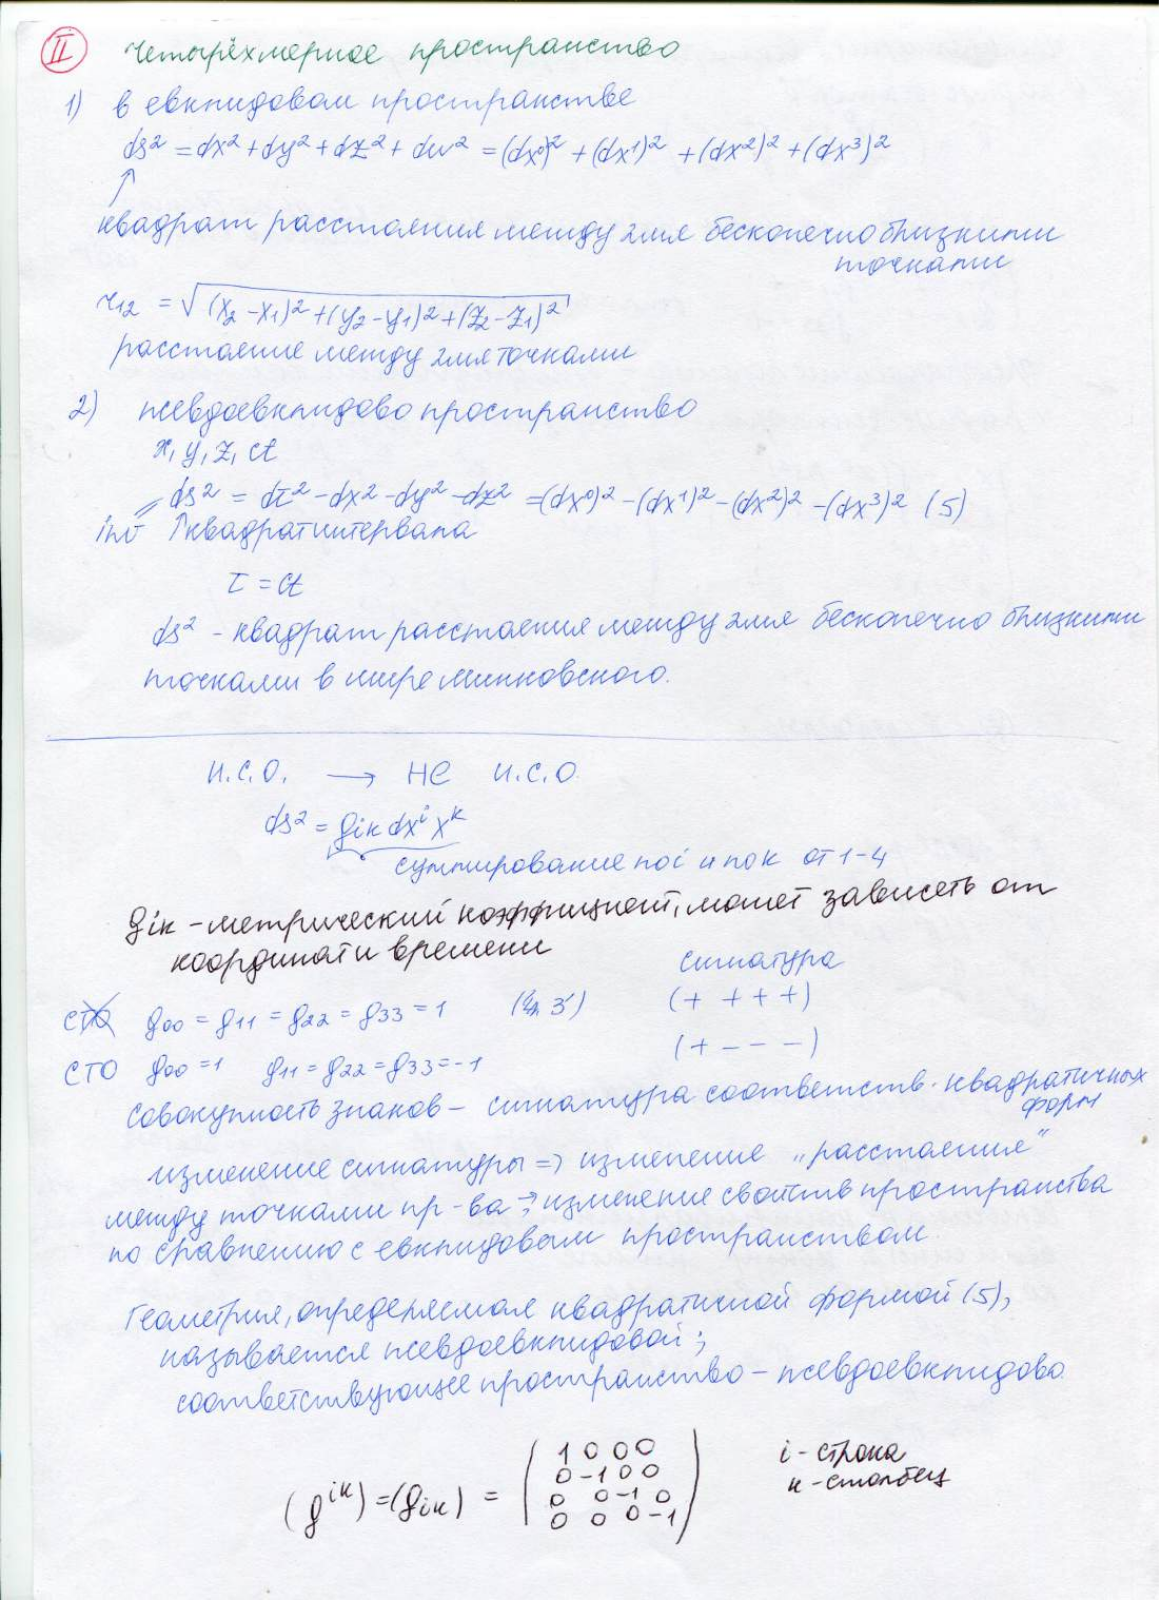 II Четырёхмерное пространство
1) в евклидовом пространстве
ds² = dx² + dy² + dz² + du² = (dx⁰)² + (dx¹)² + (dx²)² + (dx³)²
↑
квадрат расстояния между 2мя бесконечно близкими
точками
r₁₂ = √(x₂ - x₁)² + (y₂ - y₁)² + (z₂ - z₁)²
расстояние между 2мя точками
2) псевдоевклидово пространство
x, y, z, ct
ds² = dτ² - dx² - dy² - dz² = (dx⁰)² - (dx¹)² - (dx²)² - (dx³)² (5)
inv ↑ квадрат интервала
τ = ct
ds² - квадрат расстояния между 2мя бесконечно близкими
точками в мире Минковского.
И.С.О. → НЕ И.С.О.
ds² = gᵢₖ dxⁱ xᵏ
суммирование по i и по к от 1-4
gᵢₖ - метрический коэффициент, может зависеть от
координат и времени
сигнатура
СТО g₀₀ = g₁₁ = g₂₂ = g₃₃ = 1 3') (+ + + +)
СТО g₀₀ = 1 g₁₁ = g₂₂ = g₃₃ = -1 (+ - - -)
Совокупность знаков - сигнатура соответств. квадратичных
форм
изменение сигнатуры => изменение „расстояния"
между точками пр-ва → изменение свойств пространства
по сравнению с евклидовым пространством.
Геометрия, определяемая квадратичной формой (5),
называется псевдоевклидовой;
соответствующее пространство - псевдоевклидово.
(gⁱᵏ) = (gᵢₖ) = ( 1 0 0 0 i - строка
0 -1 0 0 к - столбец
0 0 -1 0
0 0 0 -1 )